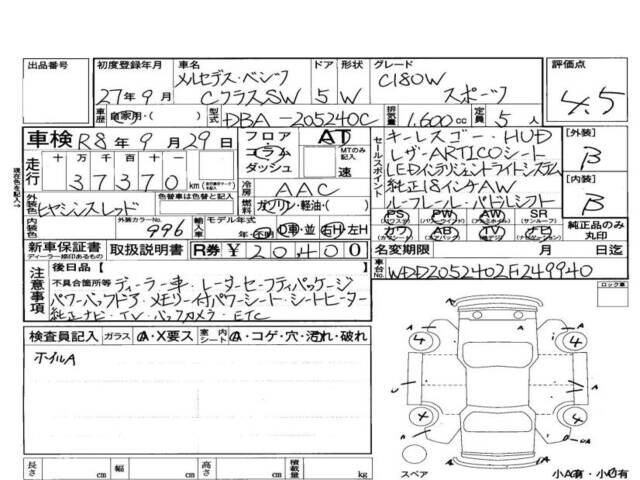 出品番号 初度登録年月 車名 ドア 形状 グレード 評価点
メルセデス・ベンツ C180W
27年9月 CクラスSW 5 W スポーツ 4.5
車歴 自家用・( ) 型式 DBA-205240C 排気量 1,600cc 定員 5人
車検 R8年9月29日 フロア コラム ダッシュ AT MTのみ記入 速
セールスポイント キーレスゴー・HUD
レザーARTICOシート
LEDインテリジェントライトシステム
純正18インチAW
ルーフレール・パドルシフト
[外装] B
[内装] B
走行 十万 千百十 37370 km
冷房 AAC
外装色 ヒヤシンスレッド 色替車は色替と記入 燃料 ガソリン・軽油・( )
内装色 外装カラーNo. 996 輸入車 モデル年式 年・不明 D車・並 右H・左H
PS (パワステ) PW (パワーウインドウ) AW (アルミホイル) SR (サンルーフ)
カワ AB (エアバッグ) TV ナビ (ナビゲーション)
純正品のみ丸印
新車保証書 ディーラー捺印あるもの 取扱説明書 R券 ¥20,400 名変期限 月 日迄
注意事項 後日品[ ]
車台No. WDD2052402F249940
不具合箇所等 ディーラー車・レーダーセーフティパッケージ
パワーバックドア・メモリー付パワーシート・シートヒーター
純正ナビ・TV・バックカメラ・ETC
ロック車
検査員記入 ガラス A・X要ス 室内シート A・コゲ・穴・汚れ・破れ
ホイルA
4 4
A
U
A
長さ cm 幅 cm 高さ cm 積載量 kg
スペア 小A有・小U有